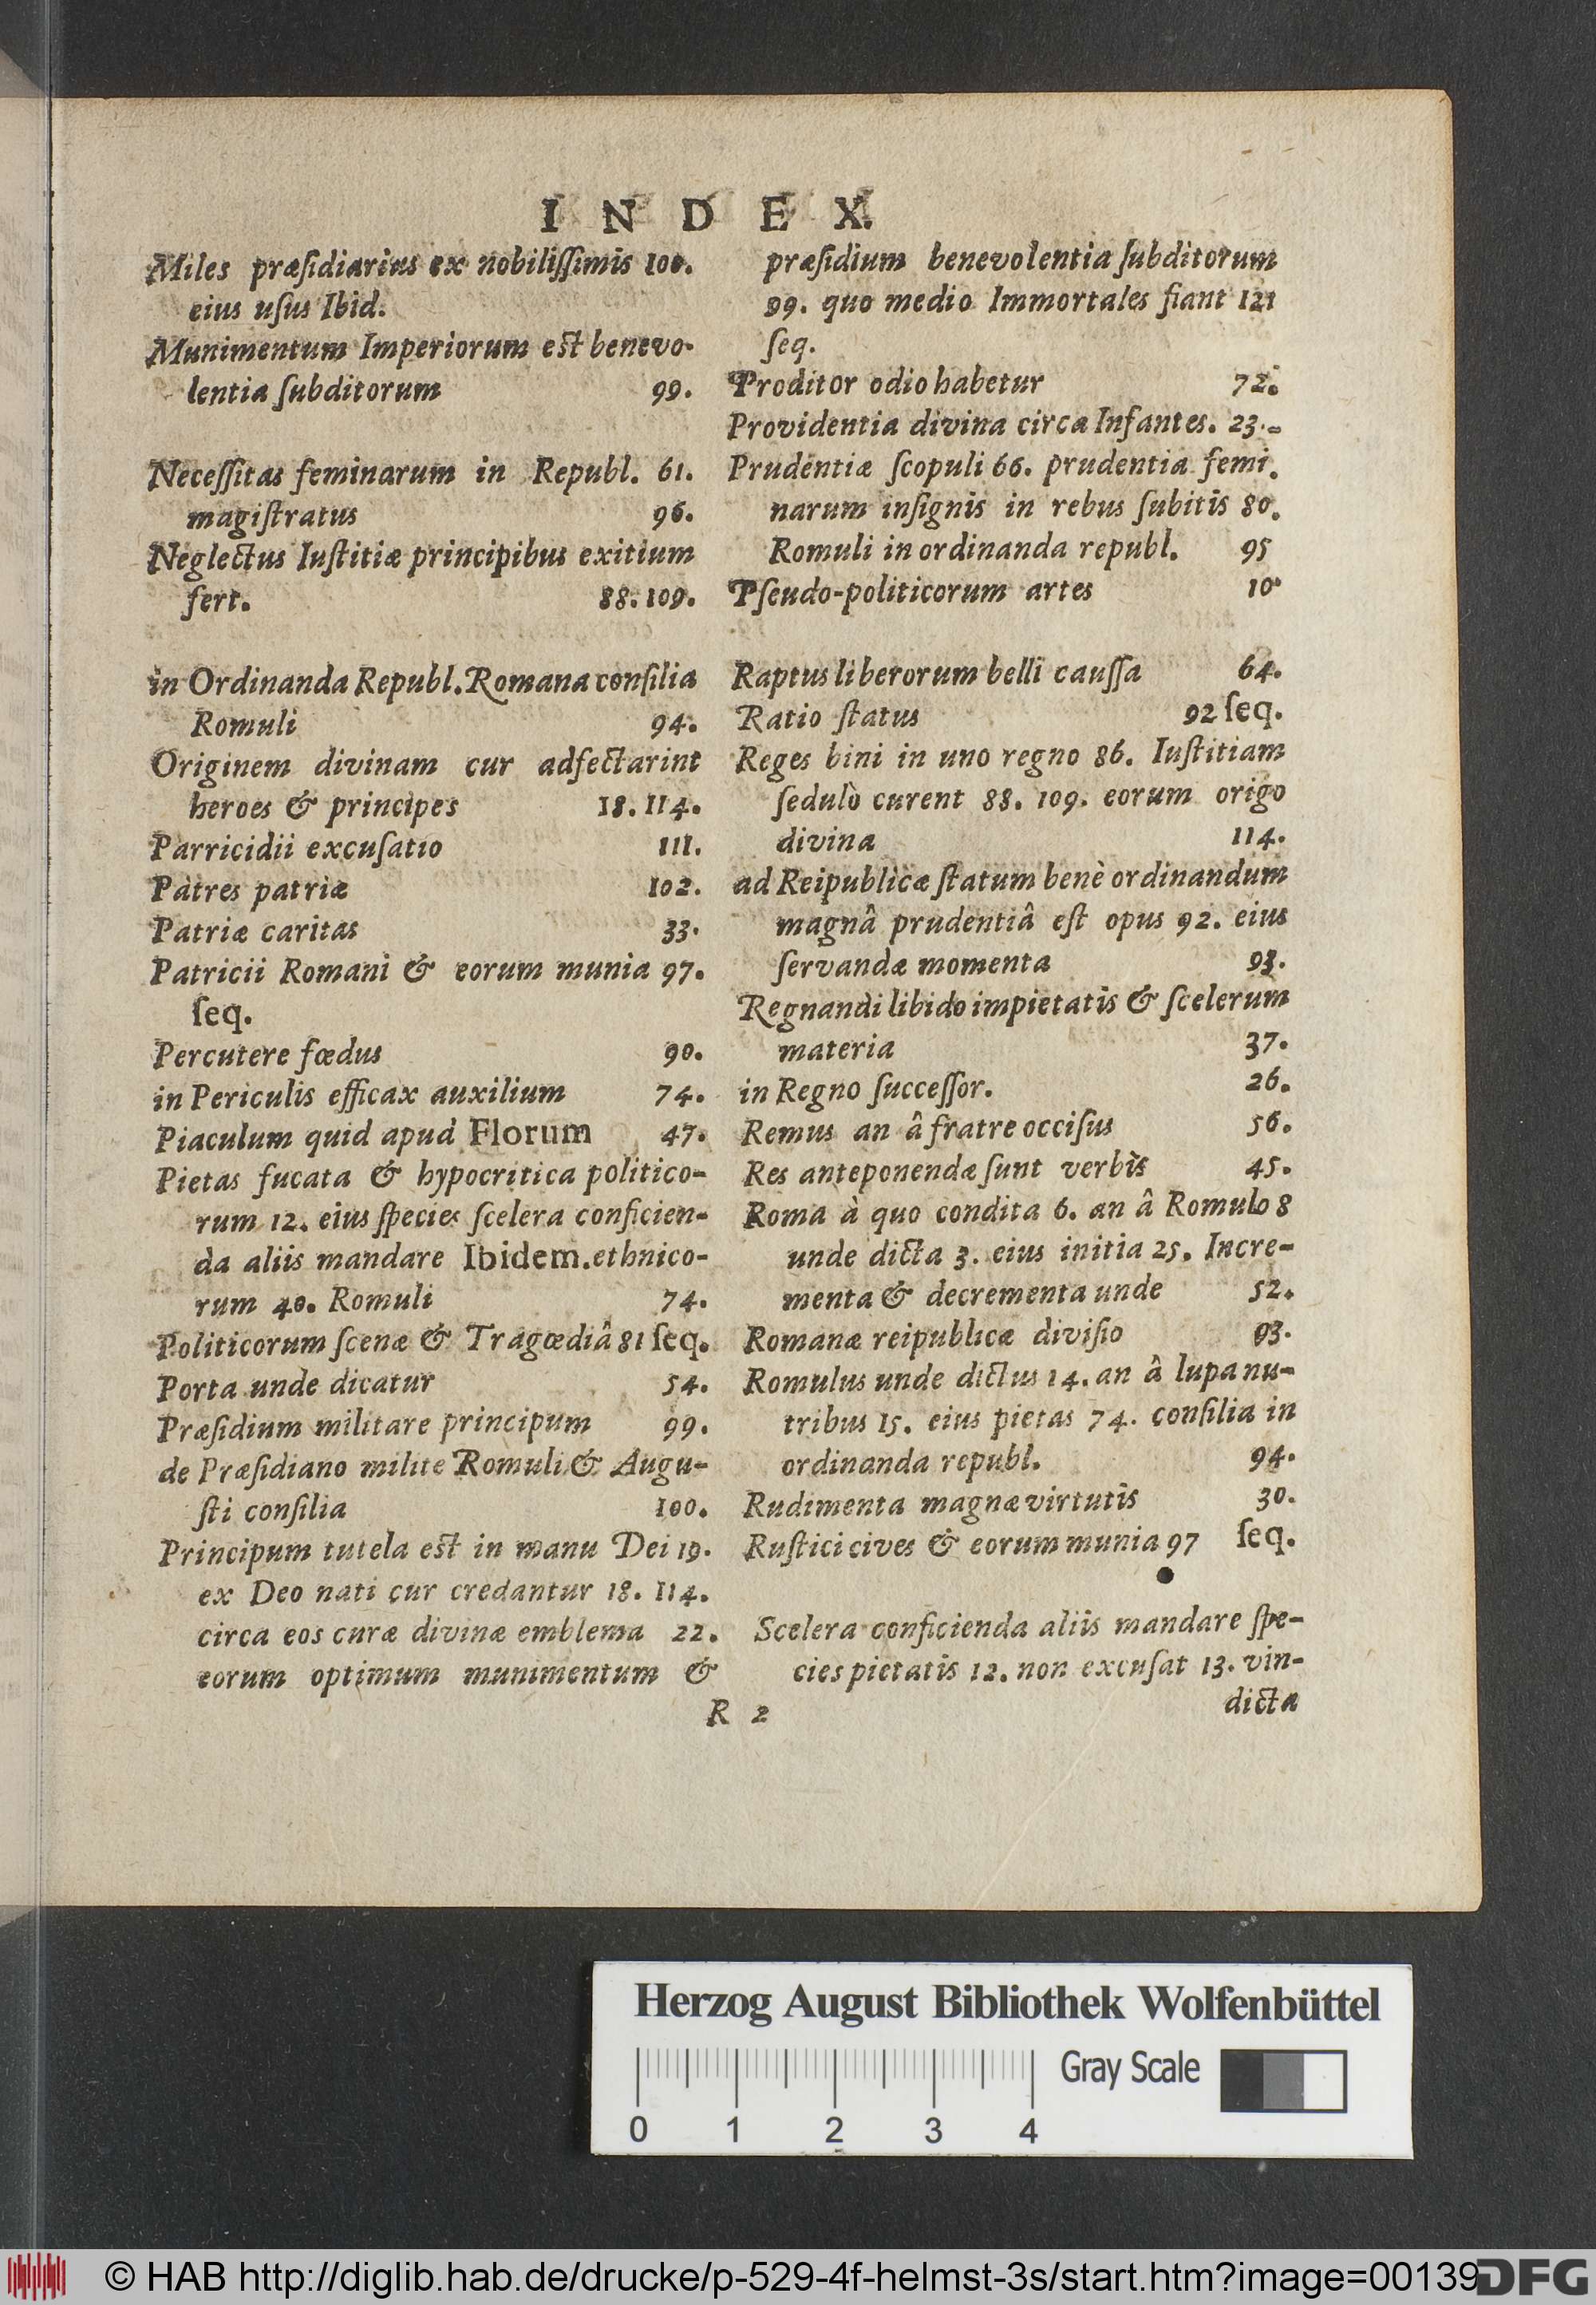 INDEX.
Miles præſidiarius ex nobiliſſimis 100.
eius uſus Ibid.
Munimentum Imperiorum eſt benevo-
lentia ſubditorum 99.
Neceſſitas feminarum in Republ. 61.
magiſtratus 96.
Neglectus Iuſtitiæ principibus exitium
fert. 88. 109.
in Ordinanda Republ. Romana conſilia
Romuli 94.
Originem divinam cur adfectarint
heroes & principes 18. 114.
Parricidii excuſatio 111.
Patres patriæ 102.
Patriæ caritas 33.
Patricii Romani & eorum munia 97.
ſeq.
Percutere fœdus 90.
in Periculis efficax auxilium 74.
Piaculum quid apud Florum 47.
Pietas fucata & hypocritica politico-
rum 12. eius ſpecies ſcelera conficien-
da aliis mandare Ibidem. ethnico-
rum 40. Romuli 74.
Politicorum ſcenæ & Tragœdiâ 81 ſeq.
Porta unde dicatur 54.
Præſidium militare principum 99.
de Præſidiano milite Romuli & Augu-
ſti conſilia 100.
Principum tutela eſt in manu Dei 19.
ex Deo nati cur credantur 18. 114.
circa eos curæ divinæ emblema 22.
eorum optimum munimentum &
præſidium benevolentia ſubditorum
99. quo medio Immortales fiant 121
ſeq.
Proditor odio habetur 72.
Providentia divina circa Infantes. 23.
Prudentiæ ſcopuli 66. prudentia femi.
narum inſignis in rebus ſubitis 80.
Romuli in ordinanda republ. 95
Pſeudo-politicorum artes 10.
Raptus liberorum belli cauſſa 64.
Ratio ſtatus 92 ſeq.
Reges bini in uno regno 86. Iuſtitiam
ſedulò curent 88. 109. eorum origo
divina 114.
ad Reipublicæ ſtatum benè ordinandum
magnâ prudentiâ eſt opus 92. eius
ſervandæ momenta 93.
Regnandi libido impietatis & ſcelerum
materia 37.
in Regno ſucceſſor. 26.
Remus an â fratre occiſus 56.
Res anteponendæ ſunt verbis 45.
Roma à quo condita 6. an â Romulo 8
unde dicta 3. eius initia 25. Incre-
menta & decrementa unde 52.
Romanæ reipublicæ diviſio 93.
Romulus unde dictus 14. an â lupa nu-
tribus 15. eius pietas 74. conſilia in
ordinanda republ. 94.
Rudimenta magnæ virtutis 30.
Ruſtici cives & eorum munia 97 ſeq.
Scelera conficienda aliis mandare ſpe-
cies pietatis 12. non excuſat 13. vin-
R 2
dicta
Herzog August Bibliothek Wolfenbüttel
Gray Scale
0 1 2 3 4
© HAB http://diglib.hab.de/drucke/p-529-4f-helmst-3s/start.htm?image=00139
DFG